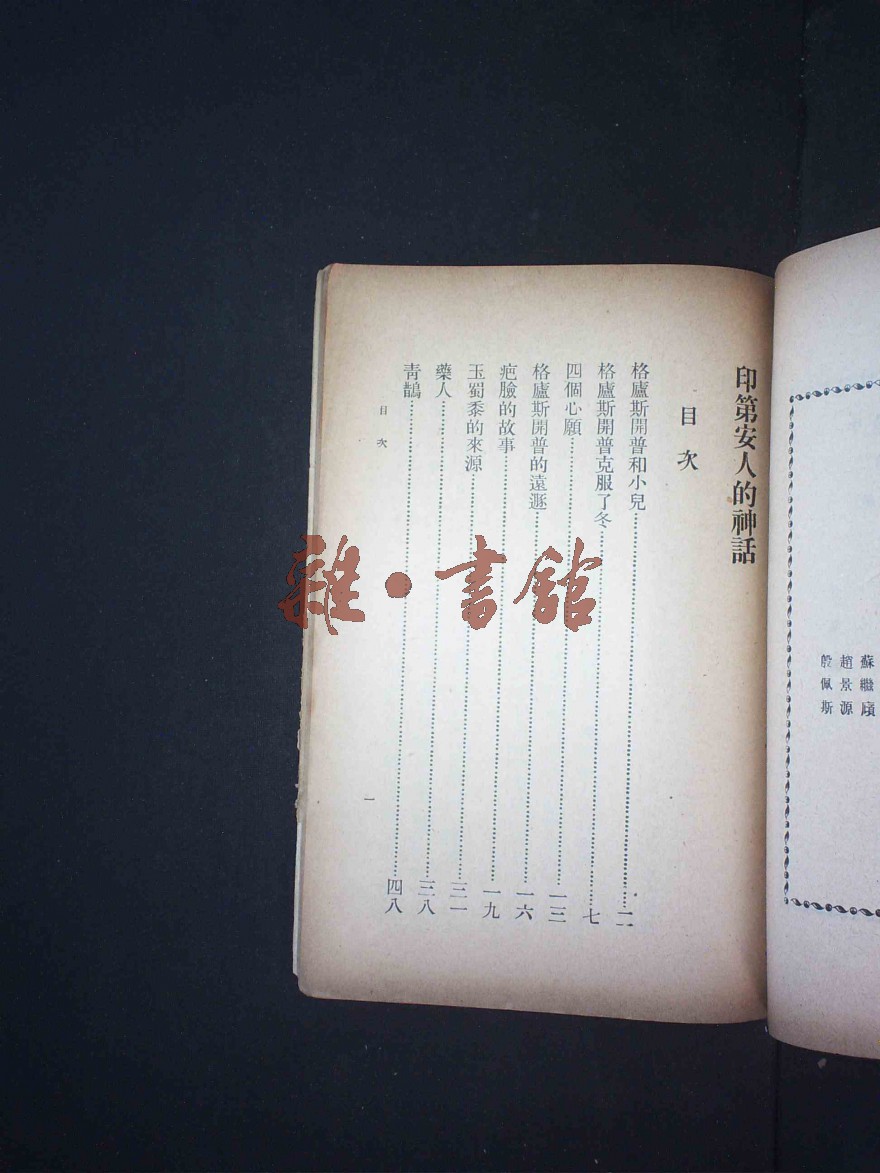 蘇繼廎
趙景源
殷佩斯
印第安人的神話
目次
格廬斯開普和小兒……二
格廬斯開普克服了冬……七
四個心願……一三
格廬斯開普的遠遯……一六
疤臉的故事……一九
玉蜀黍的來源……三一
藥人……三八
青鵲……四八
目次
一
雜·書館